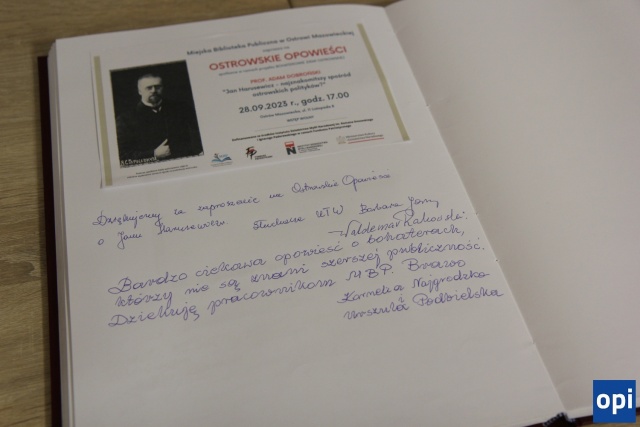 Miejska Biblioteka Publiczna w Ostrowi Mazowieckiej
zaprasza na
OSTROWSKIE OPOWIEŚCI
PROF. ADAM DOBROŃSKI
"Jan Harusewicz - najznakomitszy spośród
ostrowskich polityków?"
28.09.2023 r., godz. 17.00
WSTĘP WOLNY
Dziękujemy za zaproszenie na Ostrowskie Opowieści
o Janie Harusewiczu. Słuchacze UTW Barbara
Waldemar
Bardzo ciekawa opowieść o bohaterach,
którzy nie są znani szerszej publiczność.
Dziękuję pracownikom MBP. Brawo
Kornelia Najgrodzka
Urszula Podbielska
opi